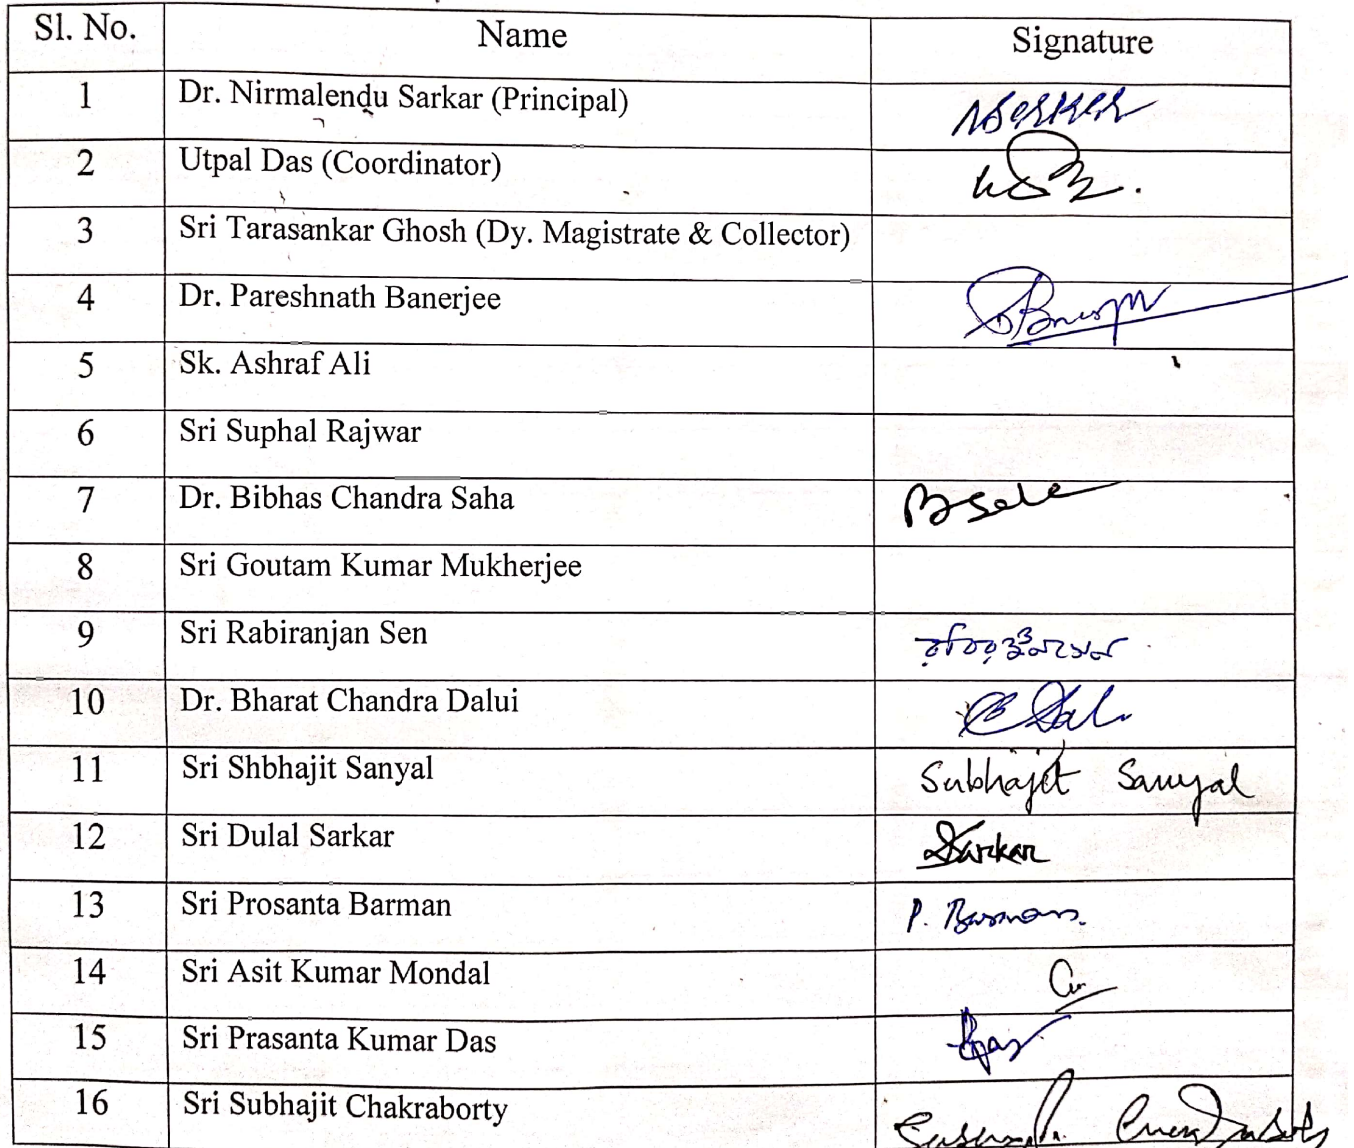 Sl. No. Name Signature
1 Dr. Nirmalendu Sarkar (Principal) NSarkar
2 Utpal Das (Coordinator)
3 Sri Tarasankar Ghosh (Dy. Magistrate & Collector)
4 Dr. Pareshnath Banerjee
5 Sk. Ashraf Ali
6 Sri Suphal Rajwar
7 Dr. Bibhas Chandra Saha
8 Sri Goutam Kumar Mukherjee
9 Sri Rabiranjan Sen
10 Dr. Bharat Chandra Dalui
11 Sri Shbhajit Sanyal Subhajit Sanyal
12 Sri Dulal Sarkar DSarkar
13 Sri Prosanta Barman P. Barman
14 Sri Asit Kumar Mondal
15 Sri Prasanta Kumar Das
16 Sri Subhajit Chakraborty